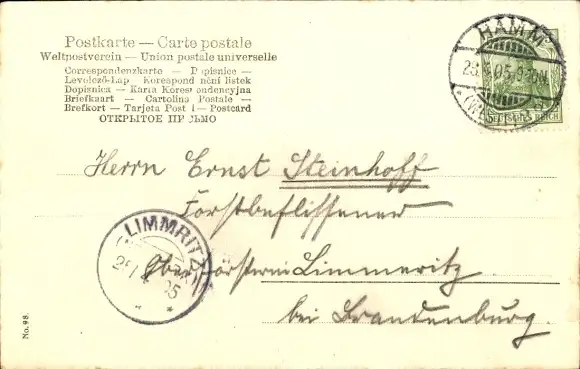 Postkarte — Carte postale
Weltpostverein — Union postale universelle
Correspondenzkarte — Dopisnice —
Levelező-Lap — Korespondenční lístek
Dopisnica — Karta Korespondencyjna
Briefkaart — Cartolina Postale —
Brefkort — Tarjeta Postal — Postcard
ОТКРЫТОЕ ПИСЬМО
HAMM
05
(WESTF.)
DEUTSCHES REICH
Herrn Ernst Steinhoff
Forstbeflissener
LIMMRITZ
05
Oberförsterei Limmeritz
bei Brandenburg.
No. 98.